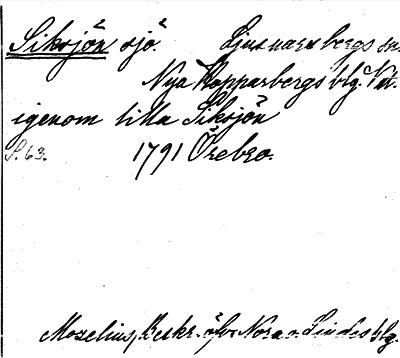 Siksjön sjö. Ljusnarsbergs sn.
Nya Kopparbergs blg. Vtt.
igenom lilla Siksjön
S. 63. 1791 Örebro.
Mozelius, Beskr. öfver Nora o. Lindes blg.